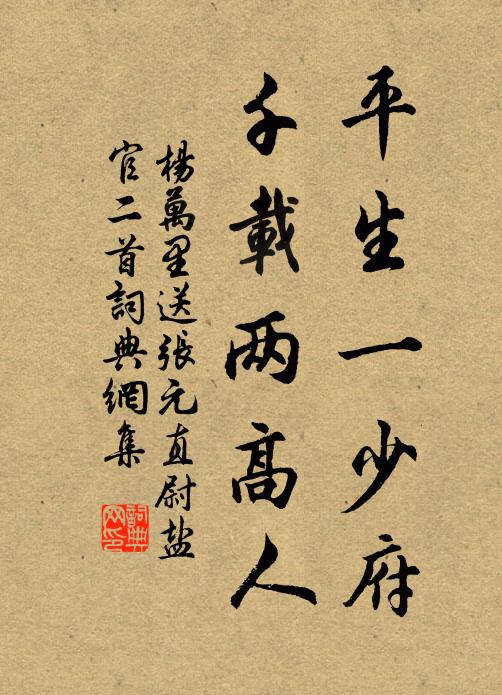 平生一少府
千載两高人
楊萬里送張元直尉盐
官二首詞典網集
詞典网印